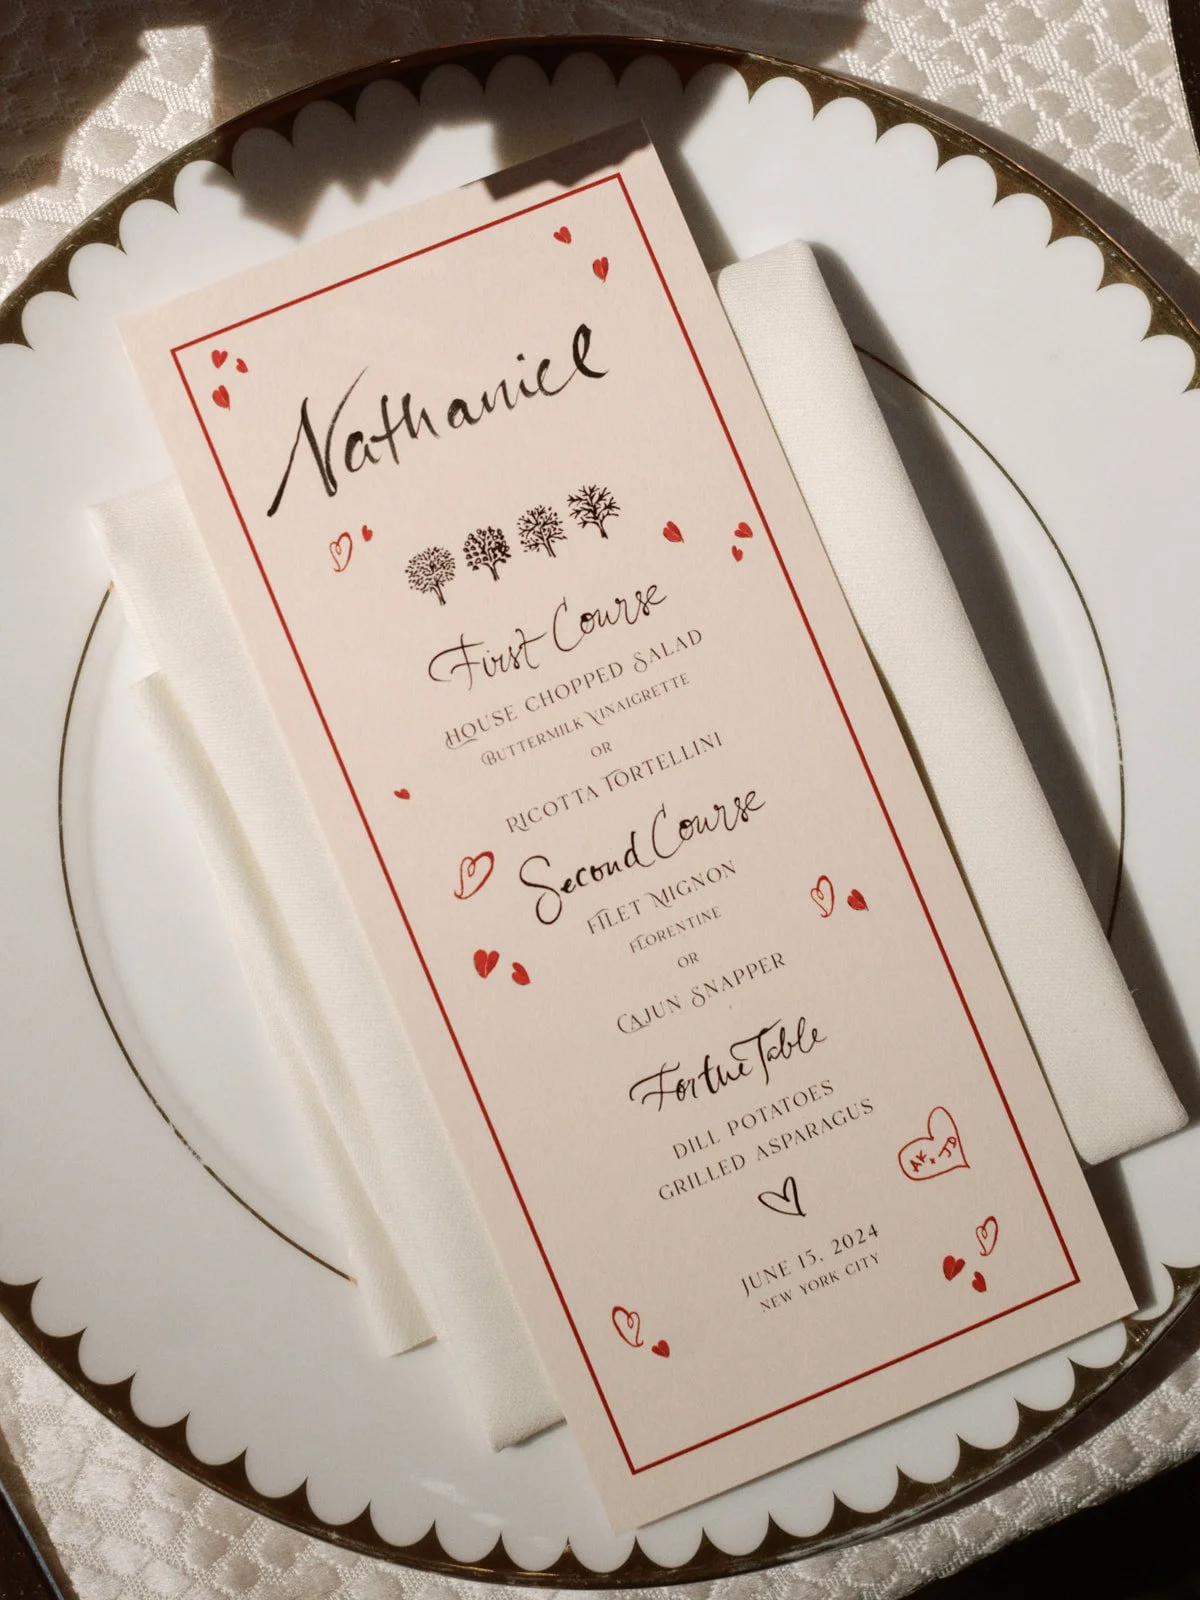 Nathaniel
First Course
HOUSE CHOPPED SALAD
BUTTERMILK VINAIGRETTE
OR
RICOTTA TORTELLINI
Second Course
FILET MIGNON
FLORENTINE
OR
CAJUN SNAPPER
For the Table
DILL POTATOES
GRILLED ASPARAGUS
AK x JD
JUNE 15, 2024
NEW YORK CITY